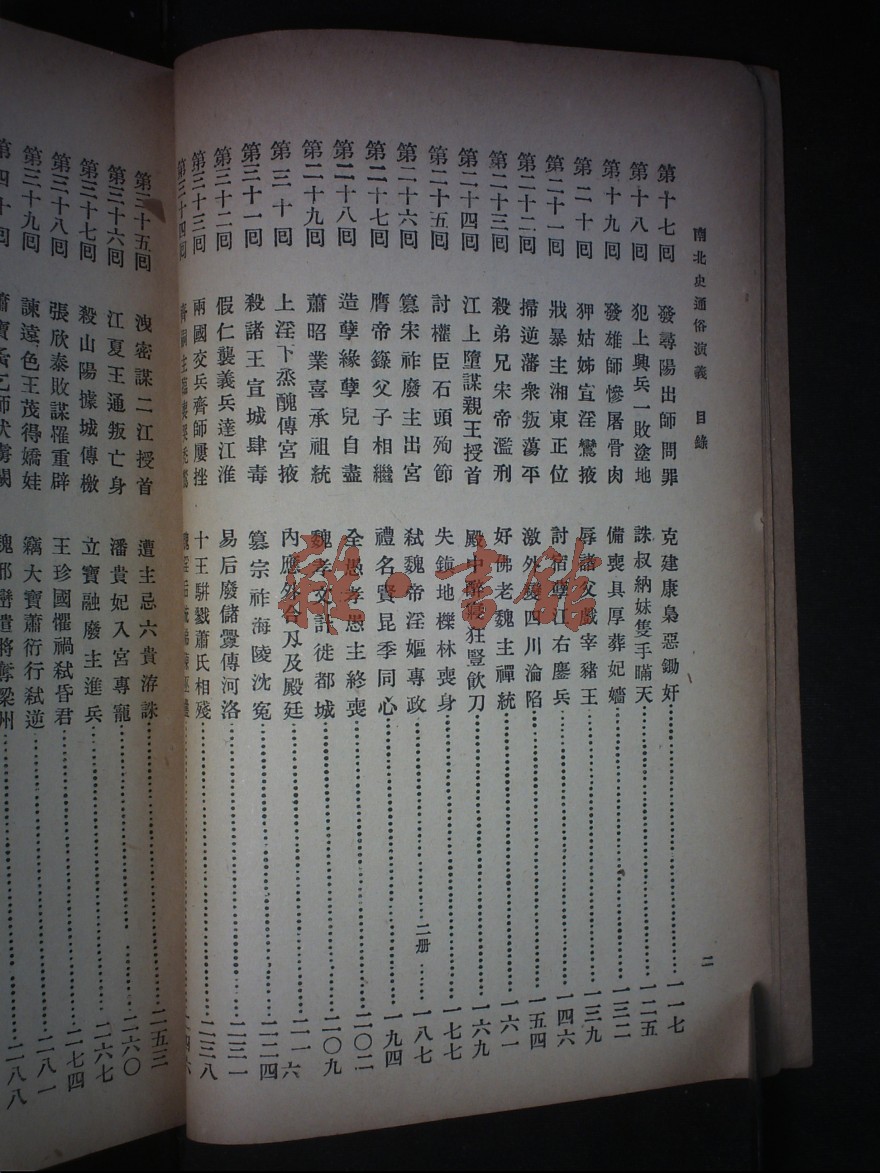 南北史通俗演義 目錄 二
第十七回 發尋陽出師問罪 克建康梟惡鋤奸 一一七
第十八回 犯上興兵一敗塗地 誅叔納妹隻手瞞天 一二五
第十九回 發雄師慘屠骨肉 備喪具厚葬妃嬙 一三二
第二十回 狎姑姊宣淫鸞掖 辱諸父戲宰豬王 一三九
第二十一回 戕暴主湘東正位 討宿孽江右鏖兵 一四六
第二十二回 掃逆藩衆叛蕩平 激外變四川淪陷 一五四
第二十三回 殺弟兄宋帝濫刑 好佛老魏主禪統 一六一
第二十四回 江上墮謀親王授首 殿中醉寢狂豎飲刀 一六九
第二十五回 討權臣石頭殉節 失鎮地櫟林喪身 一七七
第二十六回 篡宋祚廢主出宮 弑魏帝淫嫗專政 二册 一八七
第二十七回 膺帝籙父子相繼 禮名賢昆季同心 一九四
第二十八回 造孽緣孽兒自盡 全愚孝愚主終喪 二〇二
第二十九回 蕭昭業喜承祖統 魏孝文計徙都城 二〇九
第三十回 上淫下烝醜傳宮掖 內應外合刃及殿廷 二一六
第三十一回 殺諸王宣城肆毒 篡宗祚海陵沈冤 二二四
第三十二回 假仁襲義兵達江淮 易后廢儲釁傳河洛 二三一
第三十三回 兩國交兵齊師屢挫 十王駢戮蕭氏相殘 二三八
第三十四回 二四六
第三十五回 洩密謀二江授首 遭主忌六貴洊誅 二五三
第三十六回 江夏王通叛亡身 潘貴妃入宮專寵 二六〇
第三十七回 殺山陽據城傳檄 立寶融廢主進兵 二六七
第三十八回 張欣泰敗謀罹重辟 王珍國懼禍弑昏君 二七四
第三十九回 諫遠色王茂得嬌娃 竊大寶蕭衍行弑逆 二八一
第四十回 魏邢巒遣將奪梁州 二八八
雜·書館